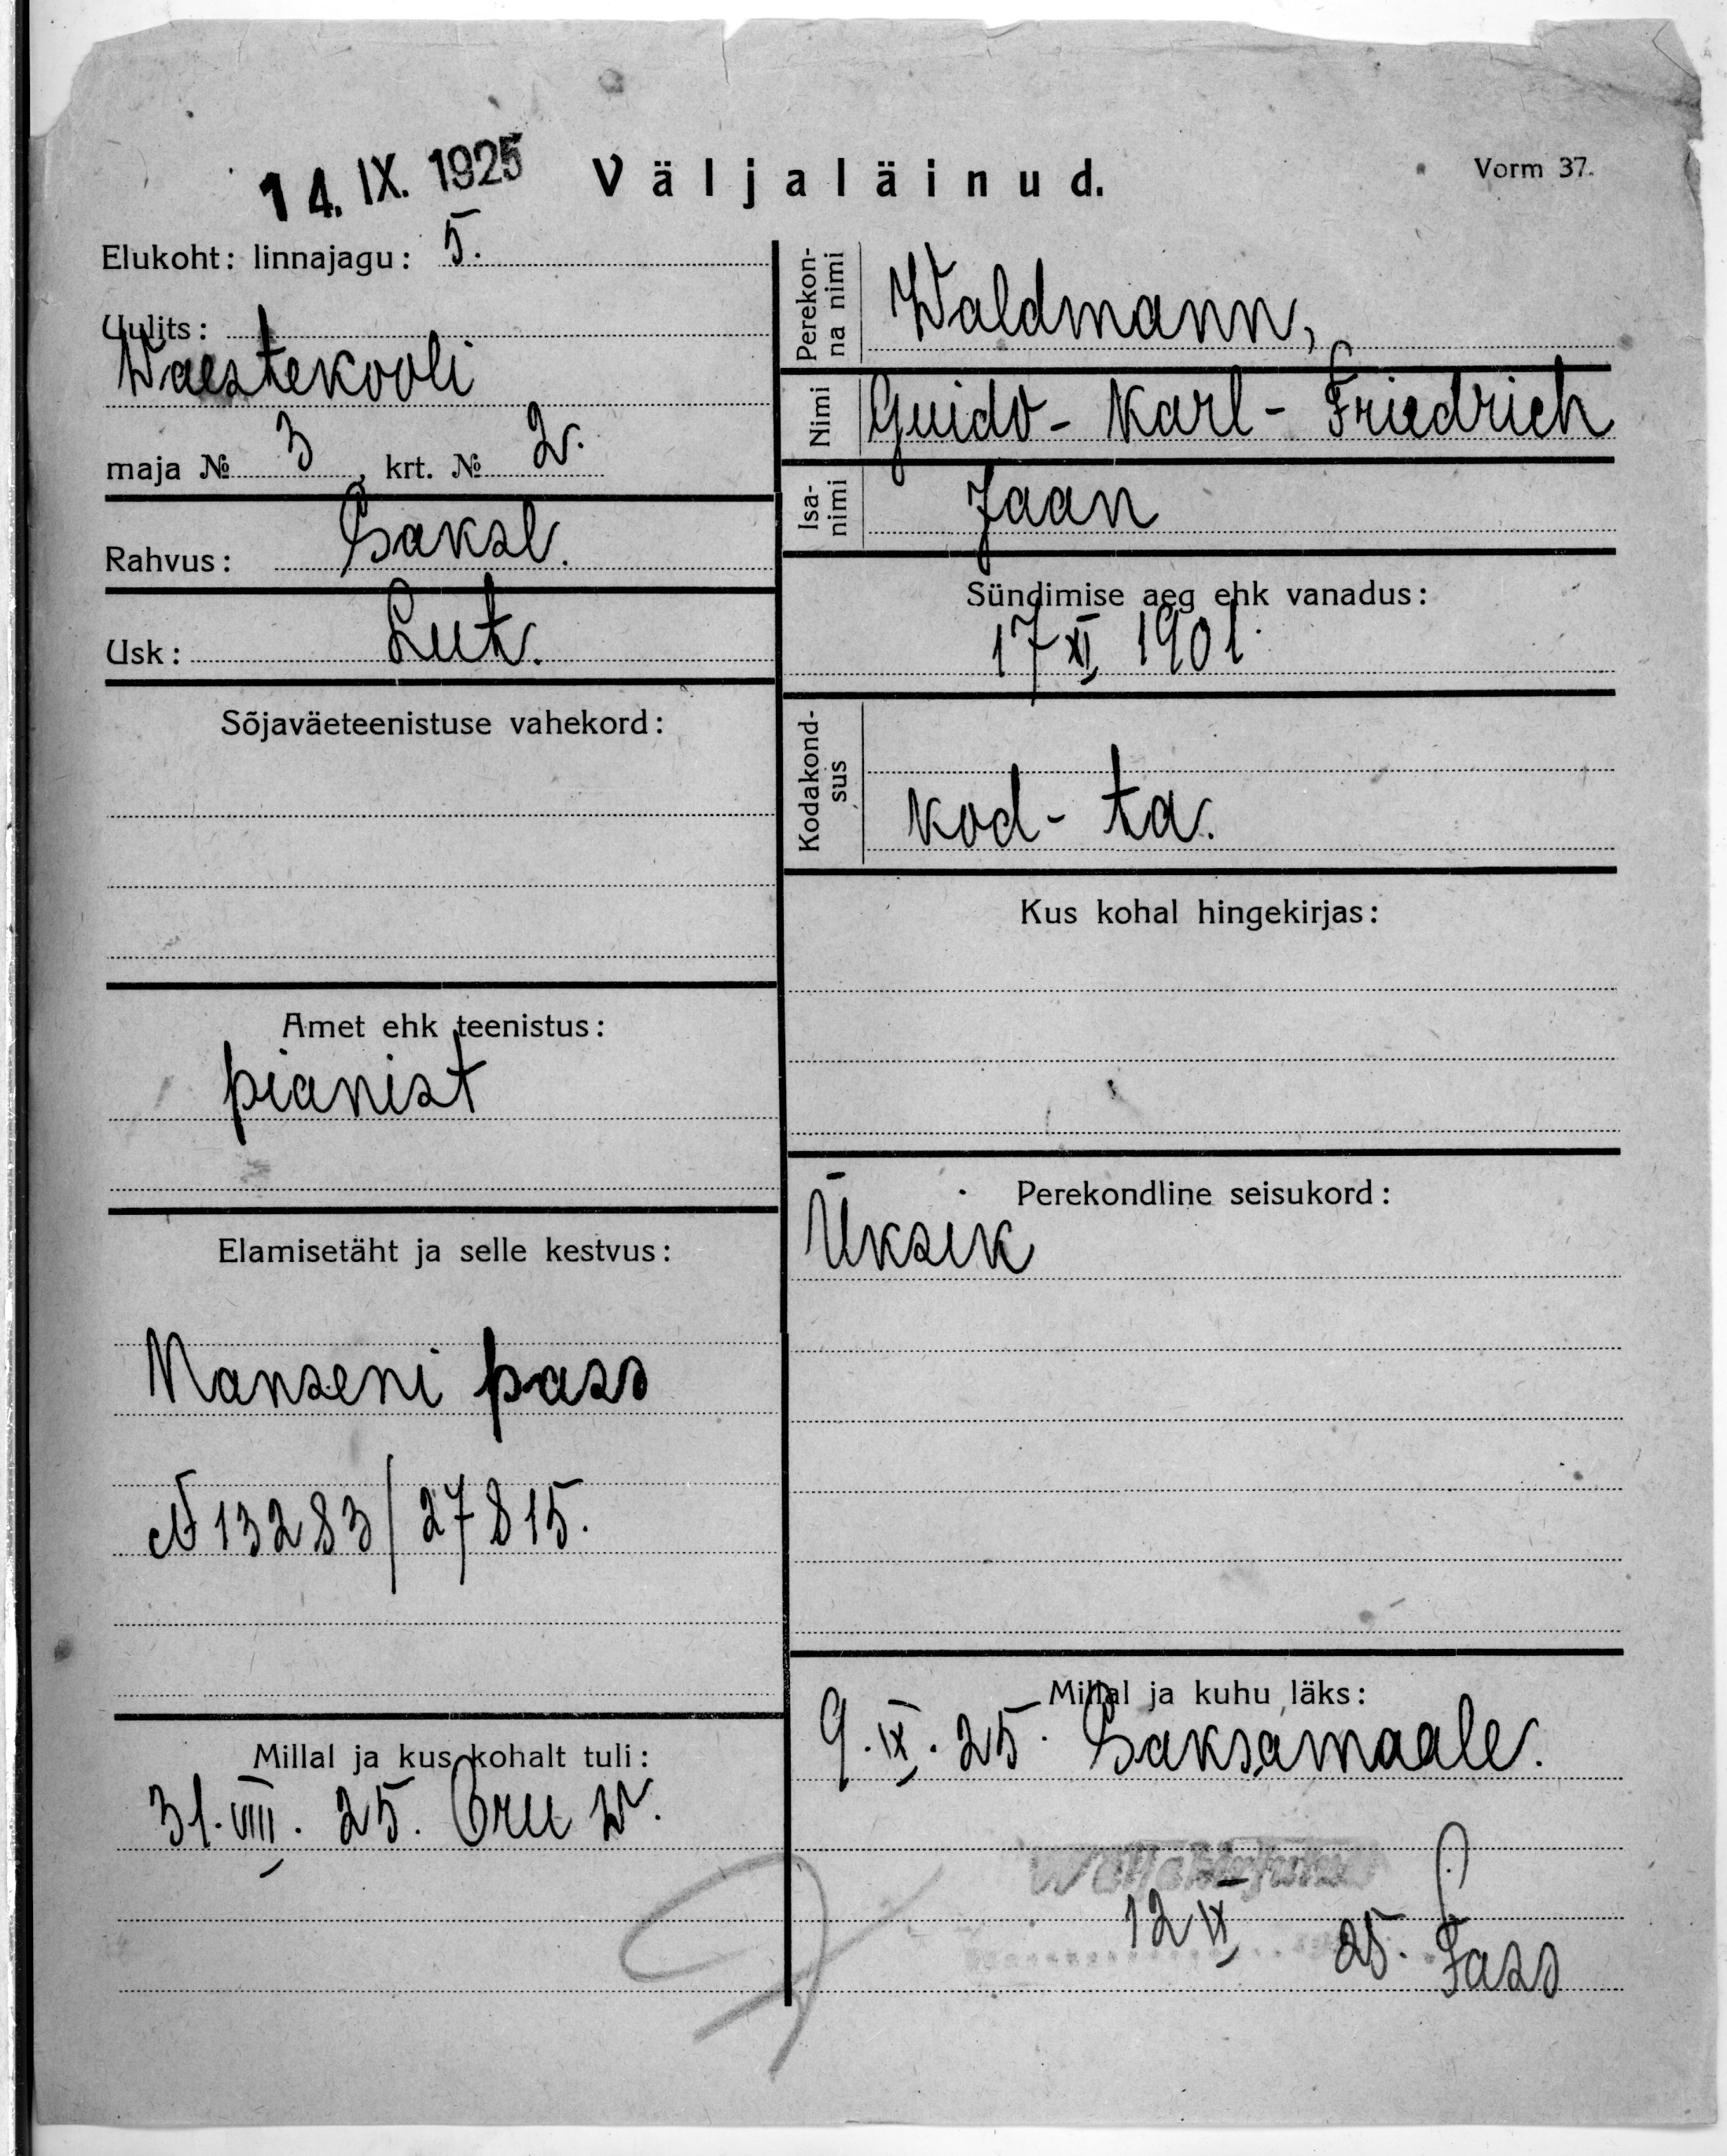 14. IX. 1925 Väljaläinud. Vorm 37.
Elukoht: linnajagu: 5.
Uulits:
Waestekooli
maja № 3, krt. № 2.
Rahvus: Saksl.
Usk: Lut.
Sõjaväeteenistuse vahekord:
Amet ehk teenistus:
pianist
Elamisetäht ja selle kestvus:
Nanseni pass
№ 13283/27815.
Millal ja kus kohalt tuli:
31. VIII. 25. Oru w.
Perekonna nimi
Waldmann,
Nimi
Guido-Karl-Friedrich
Isanimi
Jaan
Sündimise aeg ehk vanadus:
17 XI 1901.
Kodakondsus
Kod-ta.
Kus kohal hingekirjas:
Perekondline seisukord:
Üksik
Millal ja kuhu läks:
9. IX. 25. Saksamaale.
12 IX 25.